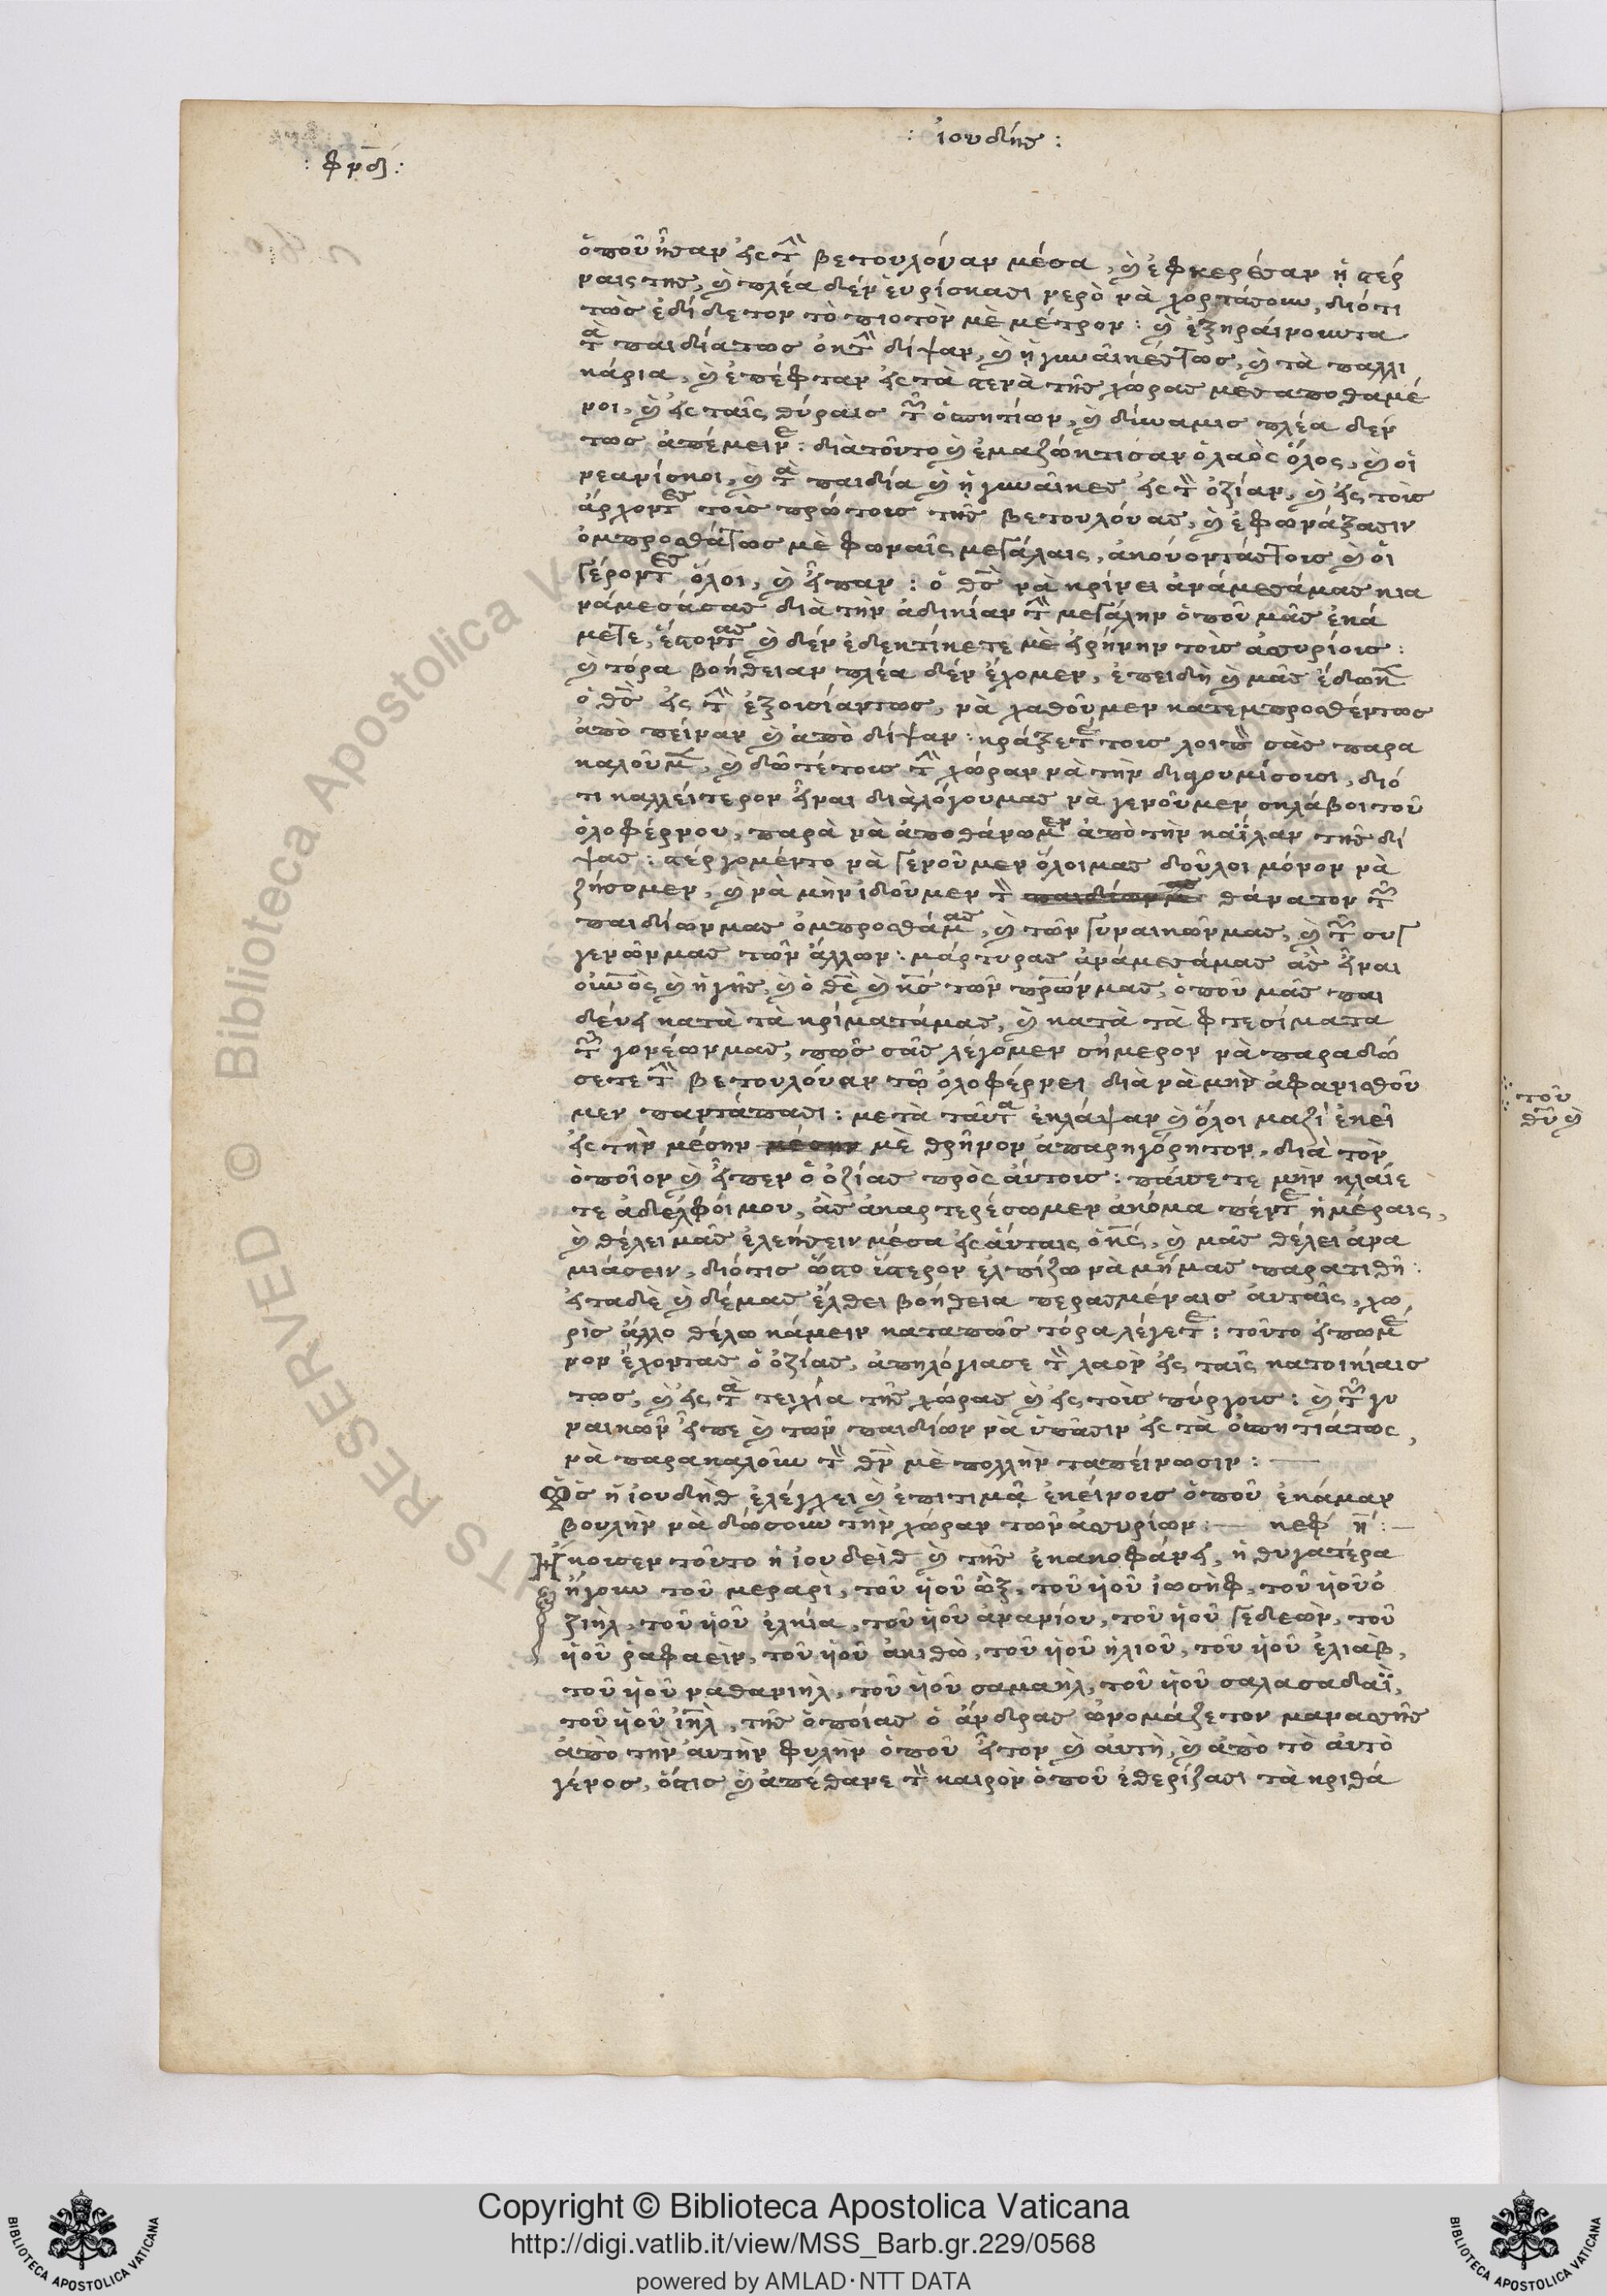 : ἰουδίης :
: φνδ :
ὁποῦ ἦσαν εἰς τὴν βετουλούαν μέσα, καὶ ἐφκερέσαν ἡ στέρ
ναις της, καὶ πλέα δὲν ἑυρίσκασι νερὸ νὰ χορτάσουν, διότι
τῶς ἐδίδετον τὸ πιοτὸν μὲ μέτρον : καὶ ἐξηράινουντα
τὰ παιδία τως ὀκ τὴν δίψαν, καὶ ἡ γυναῖκές τως, καὶ τὰ παλλι
κάρια, καὶ ἐπέφταν εἰς τὰ στενὰ τῆς χώρας μέσα ποθαμέ
νοι, καὶ εἰς ταῖς θύραις τῶν ὁσπητίων, καὶ δύναμις πλέα δέν
τως ἀπέμεινε : διὰ τοῦτο καὶ ἐμαζώκτισαν ὁ λαὸς ὅλος, καὶ οἱ
νεανίσκοι, καὶ τὰ παιδία καὶ ἡ γυναῖκες εἰς τὸν ὀζίαν, καὶ εἰς τοὺς
ἄρχοντες τοὺς πρώτους τῆς βετουλούας, καὶ ἐφωνάξασιν
ὀμπροσθά τως μὲ φωναῖς μεγάλαις, ἀκούοντάς τους καὶ οἱ
γέροντες ὅλοι, καὶ εἶπαν : ὁ θεὸς νὰ κρίνει ἀνάμεσά μας κια
νάμεσά σας διὰ τὴν ἀδικίαν τὴν μεγάλην ὁποῦ μᾶς ἐκά
μετε, ἔστοντας καὶ δέν ἐδεκτίκετε μὲ εἰρήνην τοὺς ἀσυρίους :
καὶ τόρα βοήθειαν πλέα δέν ἔχομεν, ἐπειδὴ καὶ μᾶς ἔδωκεν
ὁ θεὸς εἰς τὴν ἐξουσίαν τως, νὰ χαθοῦμεν κατεμπροσθέν τως
ἀπὸ πείναν καὶ ἀπὸ δίψαν : κράξετέ τους λοιπὸν σᾶς παρα
καλοῦμεν, καὶ δῶτέ τους τὴν χώραν νὰ τὴν διγουμίσουσι, διό
τι καλλείτερον εἶναι διὰ λόγου μας νὰ γενοῦμεν σκλάβοι τοῦ
ὀλοφέρνου, παρὰ νὰ ἀποθάνωμεν ἀπὸ τὴν καΐλαν τῆς δί
ψας : στέργομέν το νὰ γενοῦμεν ὅλοι μας δοῦλοι μόνον νὰ
ζήσομεν, καὶ νὰ μὴν ἰδοῦμεν τὸν παιδίων μας θάνατον τῶν
παιδίων μας ὀμπροσθά μας, καὶ τῶν γυναικῶν μας, καὶ τῶν συγ
γενῶν μας τῶν ἄλλων : μάρτυρας ἀνάμεσά μας ἂς εἶναι
ὁ οὐνὸς καὶ ἡ γῆς, καὶ ὁ θεὸς καὶ κύριος τῶν πρῶν μας, ὁποῦ μᾶς παι
δεύει κατὰ τὰ κρίματά μας, καὶ κατὰ τὰ φτεσίματα
τῶν γονέων μας, πῶς σᾶς λέγομεν σήμερον νὰ παραδώ
σετε τὴν βετουλούαν τῶ ὀλοφέρνει διὰ νὰ μὴν ἀφανισθοῦ
μεν παντάπασι : μετὰ ταῦτα ἐκλάψαν καὶ ὅλοι μαζὶ ἐκεῖ
εἰς τὴν μέσην μέσην μὲ θρῆνον ἀπαρηγόρητον, διὰ τὸν
ὁποῖον καὶ εἶπεν ὁ ὀζίας πρὸς αὐτοὺς : πάυσετε μὴν κλαίε
τε ἀδελφόι μου, ἂς ἀκαρτερέσωμεν ἀκόμα πέντε ἡμέραις,
καὶ θέλει μᾶς ἐλεήσειν μέσα εἰς ἀύταις ὁ κύριος, καὶ μᾶς θέλει ἀνα
μιάσειν, διότις ὥστο ὕστερον ἐλπίζω νὰ μή μας παρατιθῆ :
εἴτα δὲ καὶ δέ μας ἔλθει βοήθεια περασμέναις ἀυταῖς, χω
ρὶς ἄλλο θέλω κάμειν καταπῶς τόρα λέγετε : τοῦτο εἰπωμέ
νον ἔχοντας ὁ ὀζίας, ἀπηλόγιασε τὸν λαὸν εἰς ταῖς κατοικίαις
τως, καὶ εἰς τὰ τειχία τῆς χώρας καὶ εἰς τοὺς πύργους : καὶ τῶν γυ
ναικῶν εἶπε καὶ τῶν παιδίων νὰ ὑπᾶσιν εἰς τὰ ὁσπητιά τως,
νὰ παρακαλοῦν τὸν θεὸν μὲ πολλὴν ταπείνωσιν :
Πῶς ἡ ἰουδὴθ ἐλέγχει καὶ ἐπιτιμᾶ ἐκείνους ὁποῦ ἐκάμαν
βουλὴν νὰ δώσουν τὴν χώραν τῶν ἀσυρίων : κεφ η :
Ἤκουσεν τοῦτο ἡ ἰουδεὶθ καὶ τῆς ἐκακοφάνει, ἡ θυγατέρα
ἤγουν τοῦ μεραρὶ, τοῦ ὑιοῦ ὢξ, τοῦ ὑιοῦ ἰωσὴφ, τοῦ ὑιοῦ ὀ
ζιὴλ, τοῦ ὑιοῦ ἐλκία, τοῦ ὑιοῦ ἀνανίου, τοῦ ὑιοῦ γεδεὼν, τοῦ
ὑιοῦ ῥαφαεὶν, τοῦ ὑιοῦ ἀκιθὼ, τοῦ ὑιοῦ ἠλιοῦ, τοῦ ὑιοῦ ἐλιὰβ,
τοῦ ὑιοῦ ναθανιὴλ, τοῦ ὑιοῦ σαμαὴλ, τοῦ ὑιοῦ σαλασαδαῒ,
τοῦ ὑιοῦ ἰηλ, τῆς ὁποίας ὁ ἄνδρας ὠνομάζετον μανασῆς
ἀπὸ τὴν ἀυτὴν φυλὴν ὁποῦ εἶτον καὶ ἀυτὴ, καὶ ἀπὸ τὸ ἀυτὸ
γένος, ὅστις καὶ ἀπέθανε τὸν καιρὸν ὁποῦ ἐθερίζασι τὰ κριθά
τοῦ
θῦ καὶ
RIGHTS RESERVED © Biblioteca Apostolica Vaticana
Copyright © Biblioteca Apostolica Vaticana
http://digi.vatlib.it/view/MSS_Barb.gr.229/0568
powered by AMLAD·NTT DATA
BIBLIOTECA APOSTOLICA VATICANA
BIBLIOTECA APOSTOLICA VATICANA